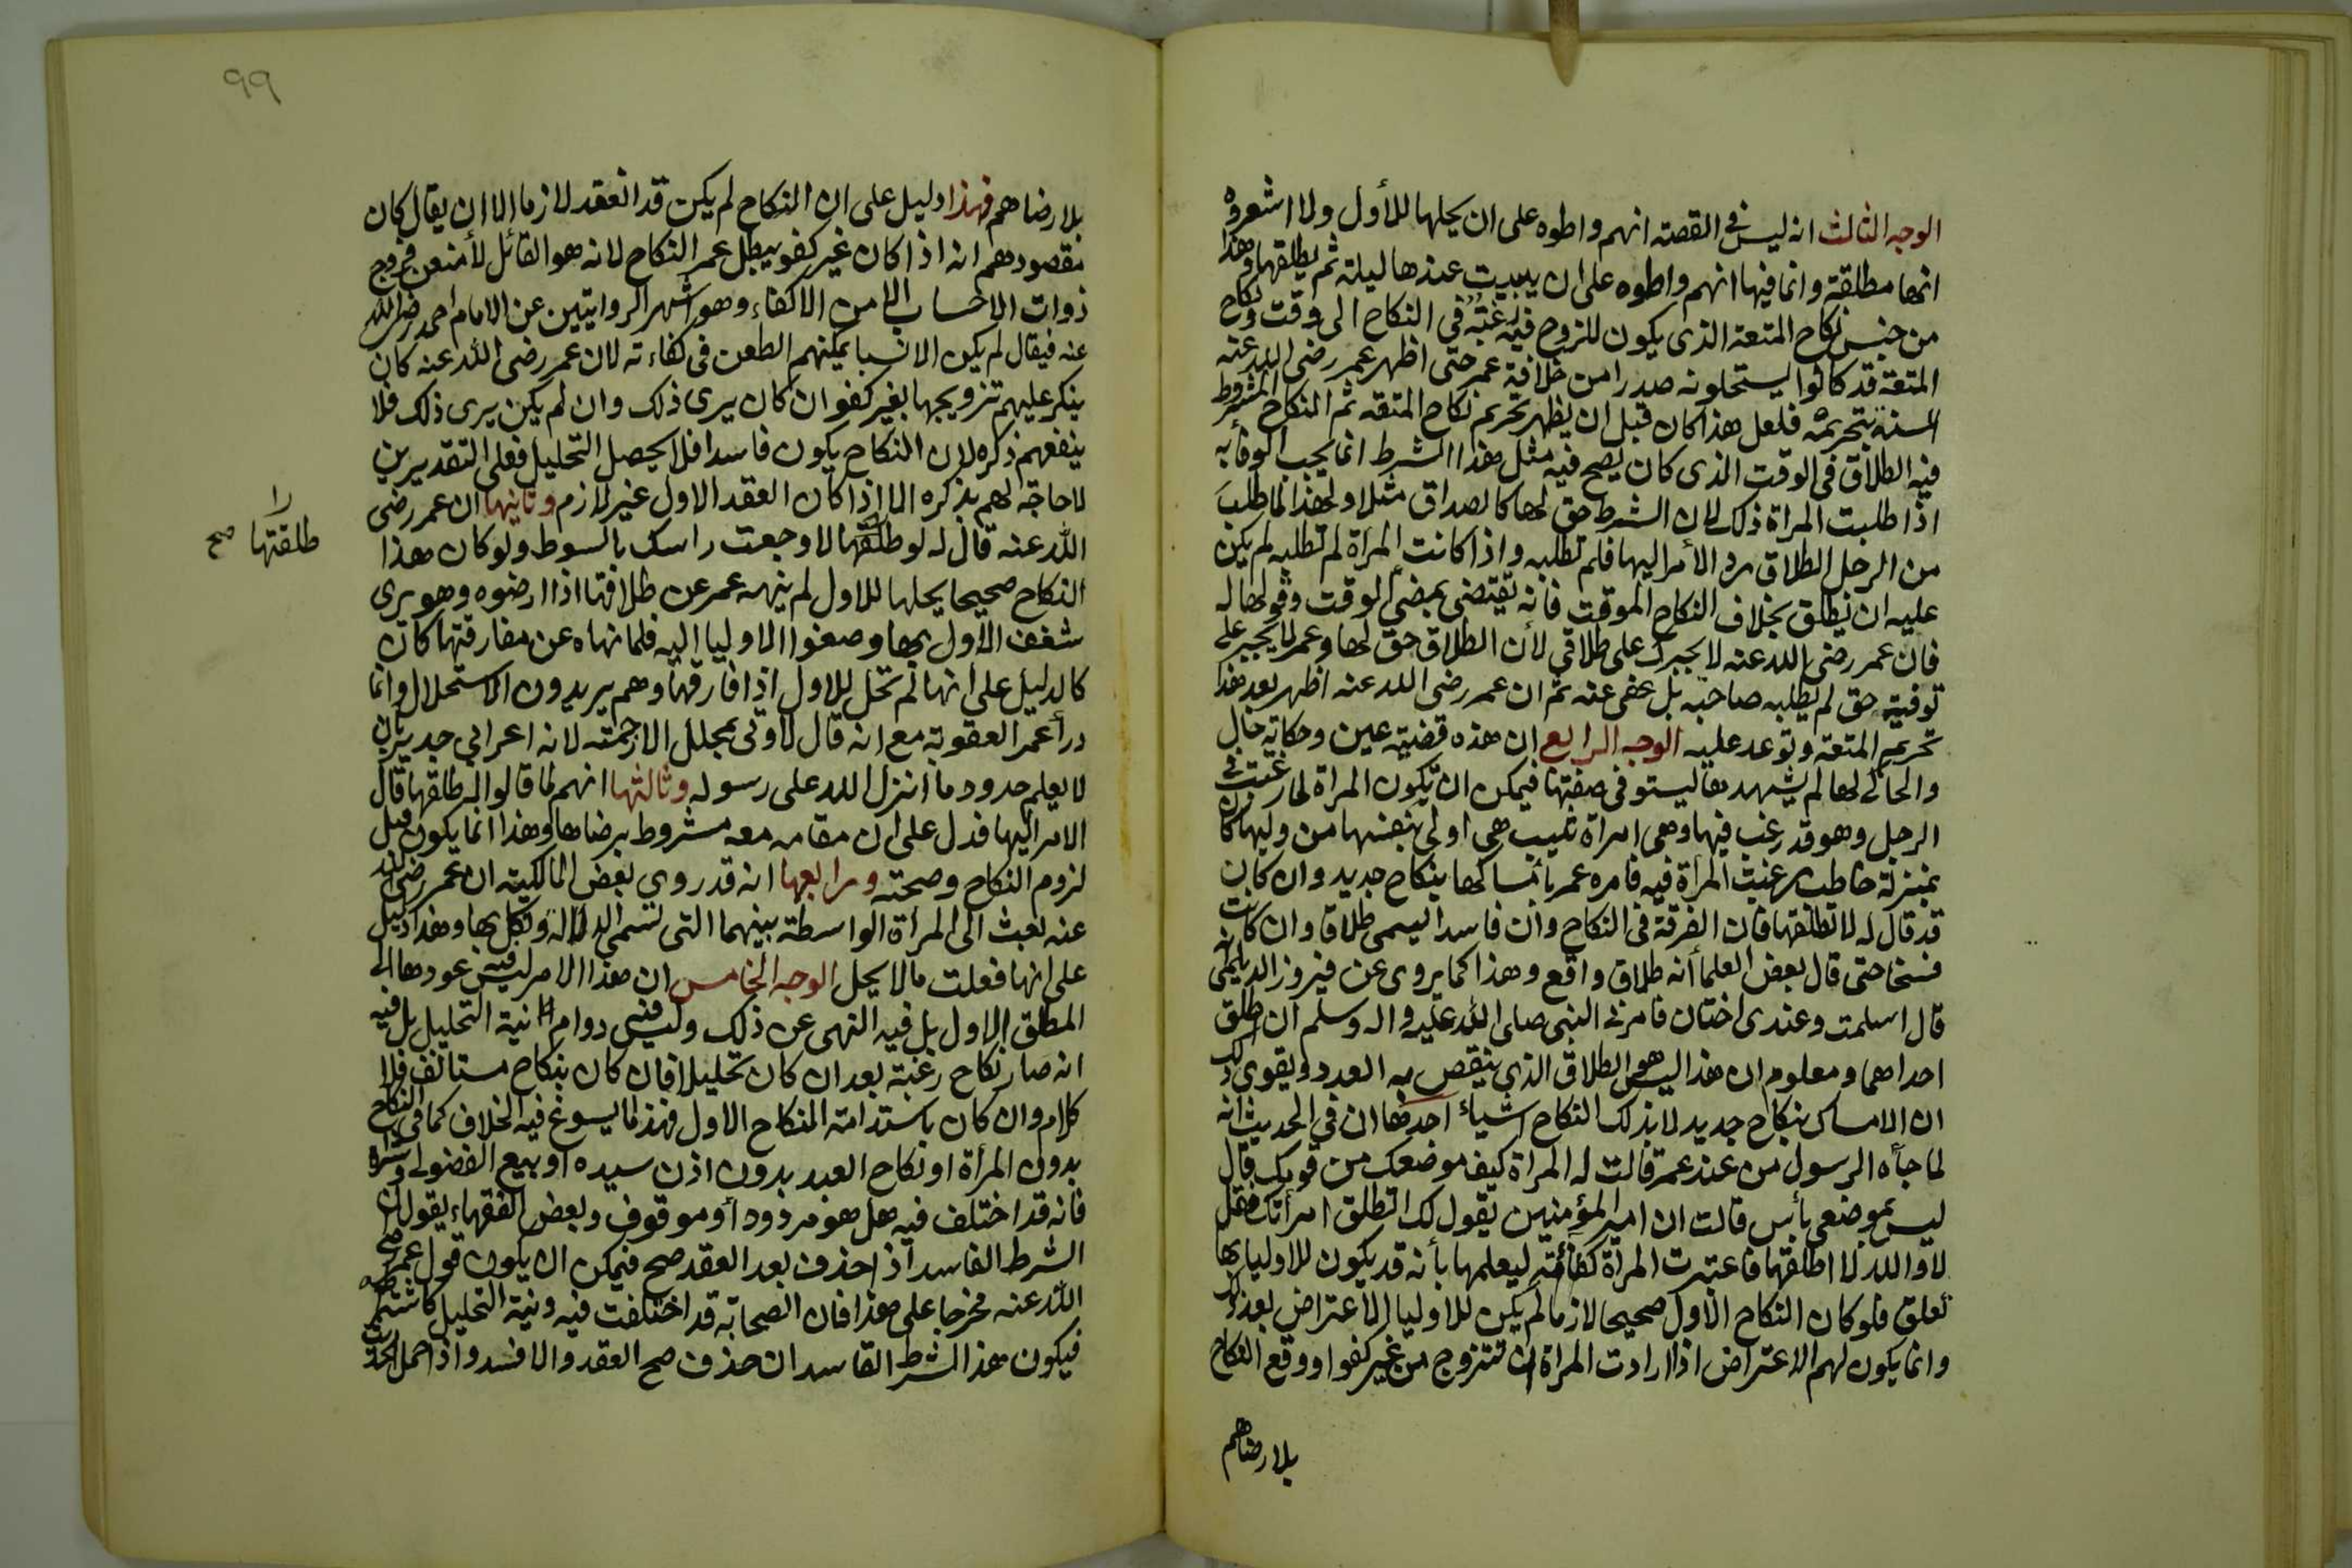 الوجه الثالث انه ليس في القصة انهم واطوه على ان يحلها للأول ولا اشعروه
انها مطلقة وانما فيها انهم واطوه على ان يبيت عندها ليلة ثم يطلقها وهذا
من جنس نكاح المتعة الذى يكون للزوج فيه رغبة في النكاح الى وقت ونكاح
المتعة قد كانوا يستحلونه صدرا من خلافة عمر حتى اظهر عمر رضى الله عنه
السنة بتحريمه فلعل هذا كان قبل ان يظهر تحريم نكاح المتعه ثم النكاح المشروط
فيه الطلاق في الوقت الذى كان يصح فيه مثل هذا الشرط انما يجب الوفأ به
اذا طلبت المراة ذلك لان الشرط حق لها كالصداق مثلا ولهذا لما طلب
من الرجل الطلاق رد الأمر اليها فلم تطلبه واذا كانت المرأة لم تطلبه لم يكن
عليه ان يطلق بخلاف النكاح الموقت فانه تقتضى بمضي الوقت وقولها له
فان عمر رضى الله عنه لا يجبرك على طلاقي لأن الطلاق حق لها وعمر لا يجبر على
توفية حق لم يطلبه صاحبه بل عفى عنه ثم ان عمر رضى الله عنه اظهر بعد هذا
تحريم المتعة وتوعد عليه الوجه الرابع ان هذه قضية عين وحكاية حال
والحاكي لها لم يشهدها ليستوفى صفتها فيمكن ان تكون المراة لما رغبت في
الرجل وهو قد رغب فيها وهى امراة ثيب هي اولى بنفسها من وليها كان
بمنزلة خاطب رغبت المرأة فيه فامره عمر بأمساكها بنكاح جديد وان كان
قد قال له لا تطلقها فان الفرقة فى النكاح وان فاسدا ليسمى طلاقا وان كانت
فسخا حتى قال بعض العلما أنه طلاق واقع وهذا كما يروى عن فيروز الديلمى انه
قال اسلمت وعندى اختان فامرنى النبى صلى الله عليه واله وسلم ان اطلق
احداهما ومعلوم ان هذا ليس هو الطلاق الذي ينقص به العدد ويقوى ذلك
ان الامساك بنكاح جديد لا بذلك النكاح اشياء احدها ان في الحديث انه
لما جأه الرسول من عند عمر قالت له المراة كيف موضعك من قومك قال
ليس بموضعى بأس قالت ان امير المؤمنين يقول لك اتطلق امرأتك فقل
لا والله لا اطلقها فاعتبرت المرأة كفأته ليعلمها بأنه قد يكون للاوليا بها
تعلق فلو كان النكاح الأول صحيحا لازما لم يكن للاوليا الاعتراض بعد ذلك
وانما يكون لهم الاعتراض اذا ارادت المراة ان تتزوج من غير كفو او وقع النكاح
بلا رضاهم
٩٩
بلا رضاهم فهذا دليل على ان النكاح لم يكن قد انعقد لازما الا ان يقال كان
مقصودهم انه اذا كان غير كفو يبطل عمر النكاح لانه هو القائل لأمنعن فروج
ذوات الاحساب الا من الاكفاء وهو اشهر الروايتين عن الامام احمد رضى الله
عنه فيقال لم يكن الانسبا يمكنهم الطعن فى كفاءته لان عمر رضى الله عنه كان
ينكر عليهم تزويجها بغير كفو ان كان يرى ذلك وان لم يكن يرى ذلك فلا
ينفعهم ذكره لان النكاح يكون فاسدا فلا يحصل التحليل فعلى التقديرين
لا حاجة لهم بذكره الا اذا كان العقد الاول غير لازم وثانيها ان عمر رضى
الله عنه قال له لو طلقتها لاوجعت راسك بالسوط ولو كان هذا
طلقتها صح
النكاح صحيحا يحلها للاول لم ينهه عمر عن طلاقها اذا ارضوه وهو يرى
شغف الأول بها وصغوا الاوليا اليه فلما نهاه عن مفارقتها كان
كالدليل على انها لم تحل للاول اذا فارقها وهم يريدون الاستحلال وانما
درأ عمر العقوبة مع انه قال لا اوتى بمحلل الا رجمته لانه اعرابي جدير بان
لا يعلم حدود ما انزل الله على رسوله وثالثها انهم لما قالوا له طلقها قال
الامر اليها فدل على ان مقامه معه مشروط برضاها وهذا انما يكون قبل
لزوم النكاح وصحته ورابعها انه قد روي بعض المالكية ان عمر رضى الله
عنه بعث الى المرأة الواسطة بينهما التى تسمى الدلاله ونكل بها وهذا دليل
على انها فعلت ما لا يحل الوجه الخامس ان هذا الامر ليس فيه عودها الى
المطلق الاول بل فيه النهى عن ذلك وليس فيه دوام نية التحليل بل فيه
انه صار نكاح رغبة بعد ان كان تحليلا فان كان بنكاح مستانف فلا
كلام وان كان باستدامة النكاح الاول فهذا مما يسوغ فيه الخلاف كما فى النكاح
بدون المرأة او نكاح العبد بدون اذن سيده او بيع الفضولى وشراه
فانه قد اختلف فيه هل هو مردود أو موقوف وبعض الفقهاء يقول ان
الشرط الفاسد اذا حذف بعد العقد صح فيمكن ان يكون قول عمر رضى
الله عنه مخرجا على هذا فان الصحابة قد اختلفت فيه ونية التحليل كاشتراطه
فيكون هذا الشرط الفاسد ان حذف صح العقد والا فسد واذا حمل الحديث